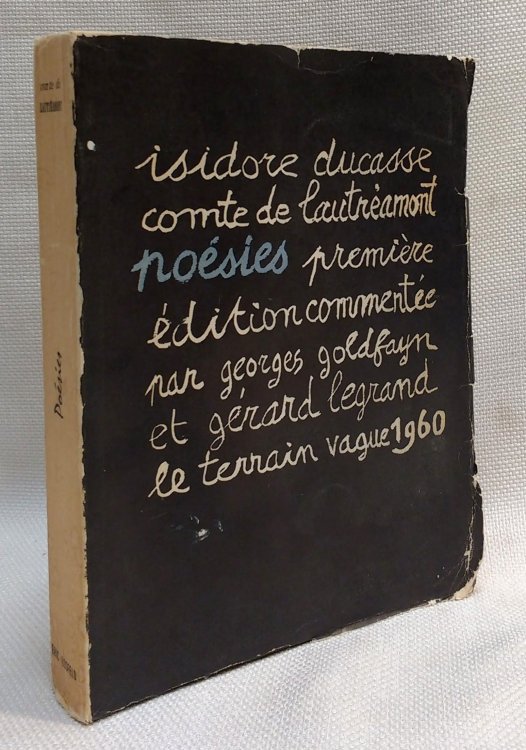 isidore ducasse
comte de lautréamont
poésies première
édition commentée
par georges goldfayn
et gérard legrand
le terrain vague 1960
comte de
LAUTRÉAMONT
Poésies